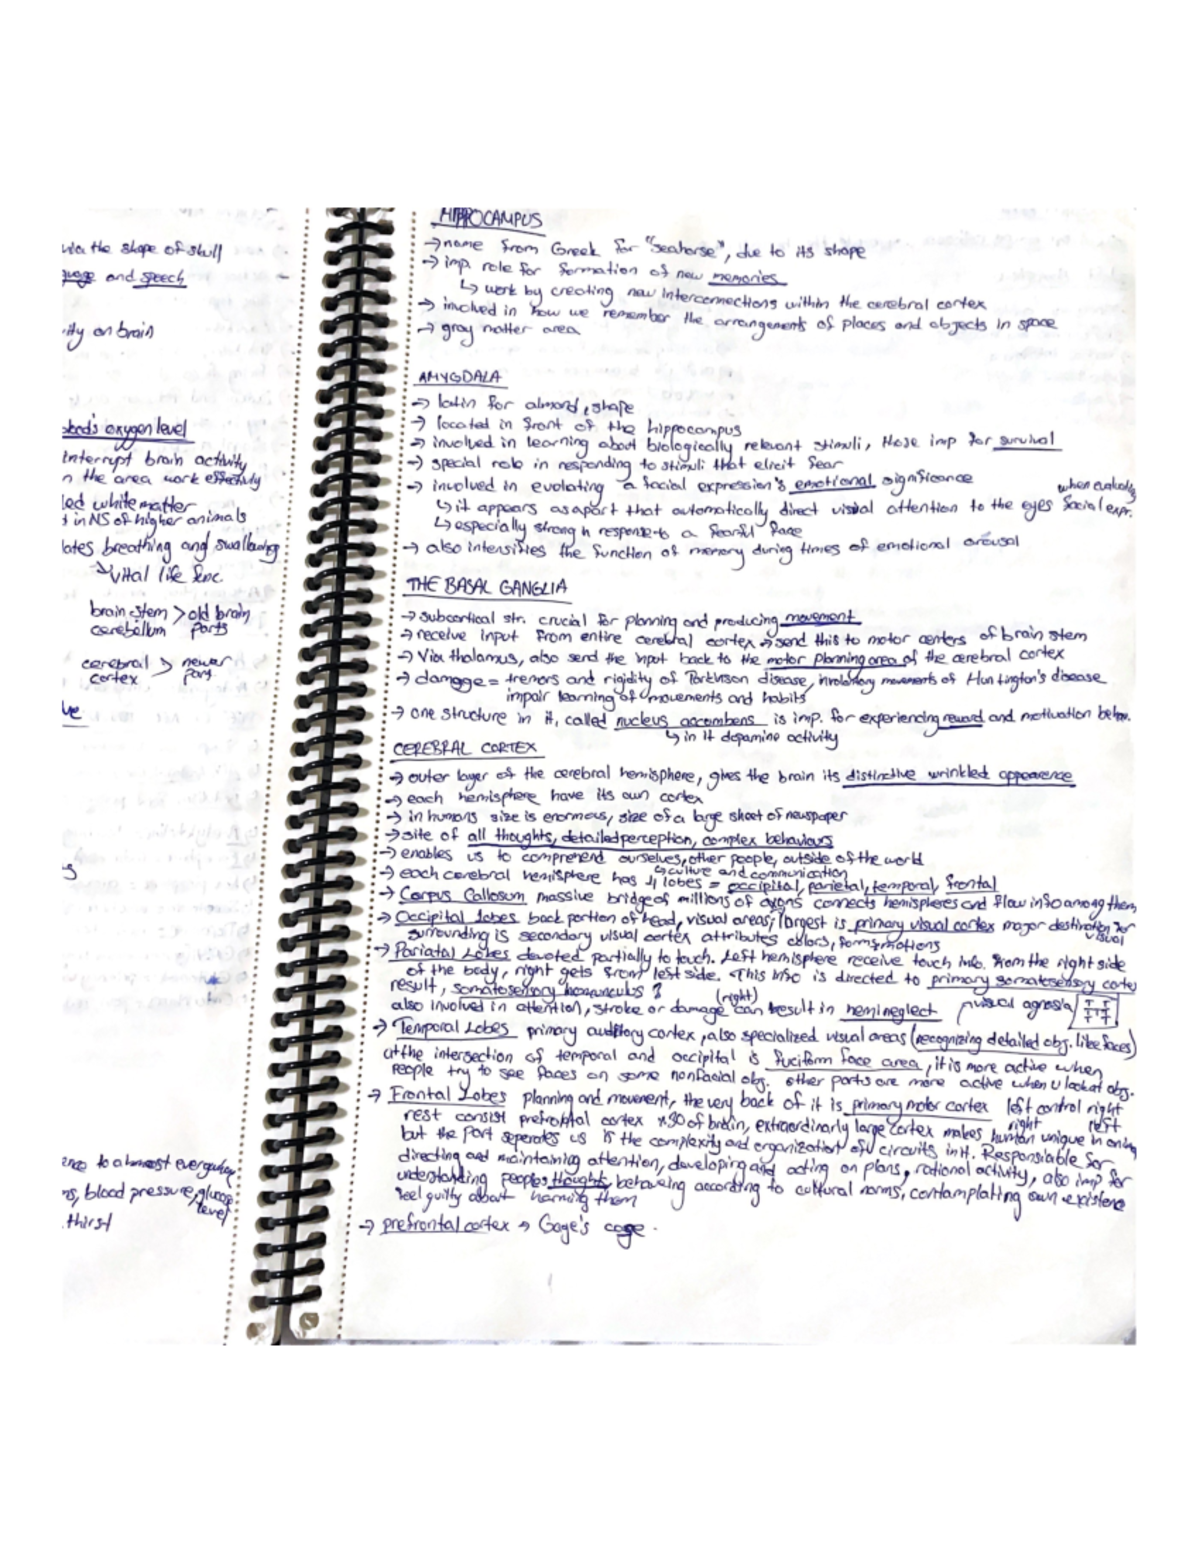 via the shape of skull
and speech
ity on brain
oxygen level
interrupt brain activity
n the area work effectivly
led white matter
t in NS of higher animals
lates breathing and swallowing
↳ Vital life func.
brain stem > old brain
cerebellum parts
cerebral > newer
cortex part
ve
s
ence to almost everyday
rs, blood pressure, glucose
level
thirst
HIPPOCAMPUS
→ name from Greek for "seahorse", due to its shape
→ imp. role for formation of new memories
↳ work by creating new interconnections within the cerebral cortex
→ involved in how we remember the arrangements of places and objects in space
→ gray matter area
AMYGDALA
→ latin for almond, shape
→ located in front of the hippocampus
→ involved in learning about biologically relevant stimuli, those imp for survival
→ special role in responding to stimuli that elicit fear
→ involved in evolating a facial expression's emotional significance
↳ it appears as apart that automatically direct visual attention to the eyes when evaluating facial expr.
↳ especially strong in response to a fearful face
→ also intensifies the function of memory during times of emotional arousal
THE BASAL GANGLIA
→ subcortical str. crucial for planning and producing movement
→ receive input from entire cerebral cortex → send this to motor centers of brain stem
→ Via thalamus, also send the input back to the motor planning area of the cerebral cortex
→ damage = tremors and rigidity of Parkinson disease, involontary movements of Huntington's disease
impair learning of movements and habits
→ one structure in it, called nucleus accumbens is imp. for experiencing reward and motivation behav.
↳ in it dopamine activity
CEREBRAL CORTEX
→ outer layer of the cerebral hemisphere, gives the brain its distinctive wrinkled appearence
→ each hemisphere have its own cortex
→ in humans size is enormous, size of a large sheet of newspaper
→ site of all thoughts, detailed perception, complex behaviours
→ enables us to comprehend ourselves, other people, outside of the world
↳ culture and communication
→ each cerebral hemisphere has 4 lobes = occipital, parietal, temporal, frontal
→ Corpus Callosum massive bridge of millions of axons connects hemispheres and flow info among them
→ Occipital lobes back portion of head, visual areas, largest is primary visual cortex major destination for visual
surrounding is secondary visual cortex attributes colors, forms, motions
→ Pariatal Lobes devoted partially to touch. Left hemisphere receive touch info. from the right side
of the body, right gets from left side. This info is directed to primary somatosensory cortex
result, somatosensory homunculus ?
also involved in attention, stroke or damage (right) can result in hemineglect visual agnosia
→ Temporal Lobes primary auditory cortex, also specialized visual areas (recognizing detailed obj. like faces)
at the intersection of temporal and occipital is fuciform face area, it is more active when
people try to see faces on some nonfacial obj. other parts are more active when u look at obj.
→ Frontal Lobes planning and movement, the very back of it is primary motor cortex left control right
right left
rest consist prefrontal cortex %30 of brain, extraordinarly large cortex makes human unique in
but the part seperates us is the complexity and organization of circuits in it. Responsiable for
directing and maintaining attention, developing and acting on plans, rational activity, also imp for
understanding peoples thoughts, behaveing according to cultural norms, contemplating own existence
feel guilty about harming them
→ prefrontal cortex → Gage's cage.